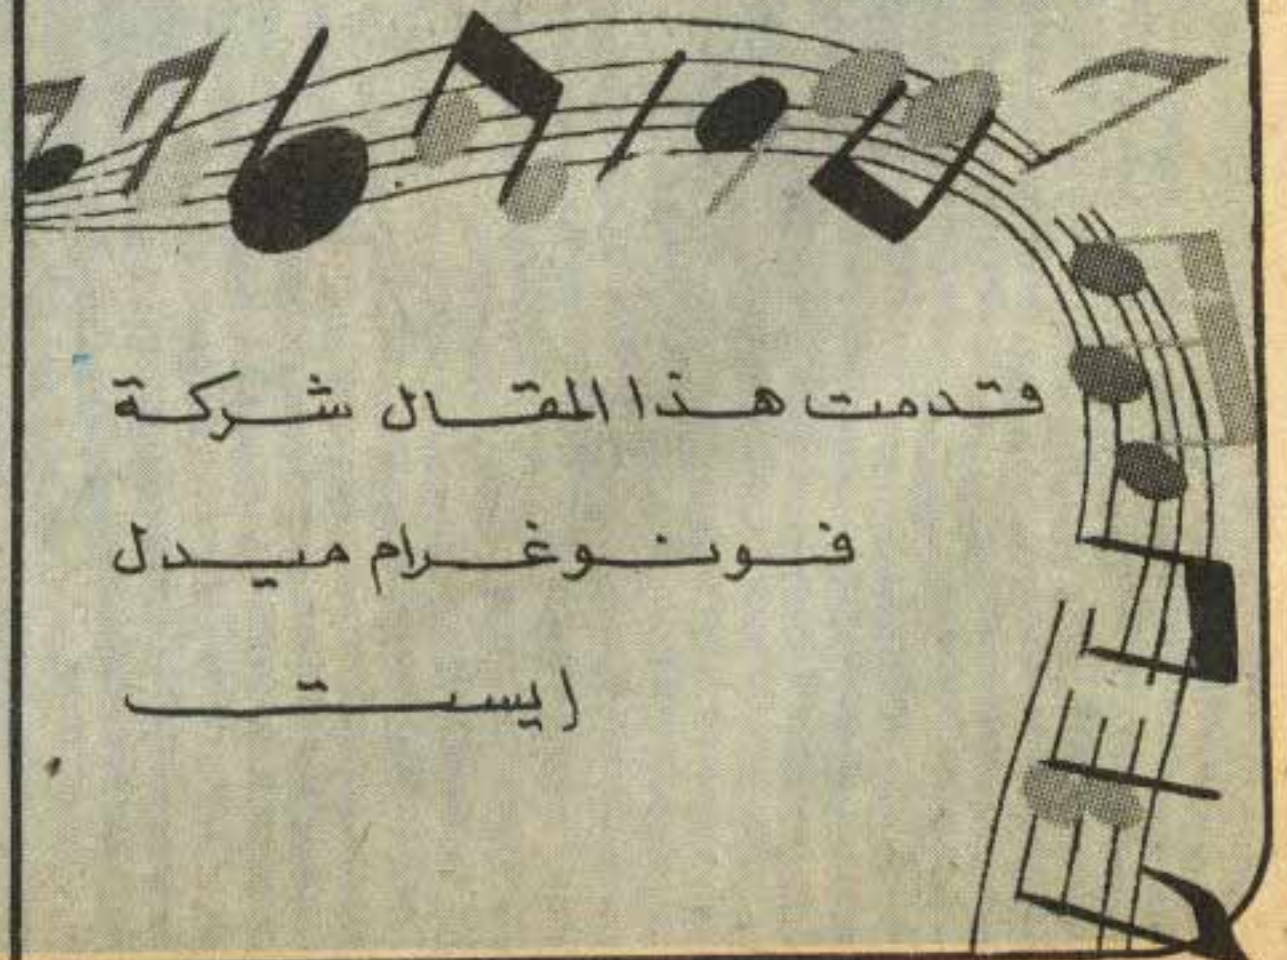 قدمت هذا المقال شركة
فونوغرام ميدل
ايست